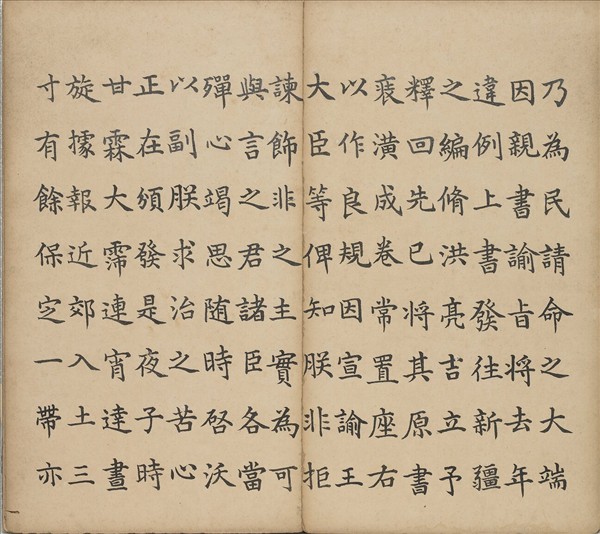 乃為民請命之大端
因親書諭旨將去年
違例上書發往新疆
之編脩洪亮吉立予
釋回先已將其原書
裝潢成卷常置座右
以作良規因宣諭王
大臣等俾知朕非拒
諫飾非之主實為可
與言之君諸臣各當
殫心竭思随時啓沃
以副朕求治之苦心
正在頒發是夜子時
甘霖大霈連宵達晝
旋據報近郊入土三
寸有餘保定一帶亦